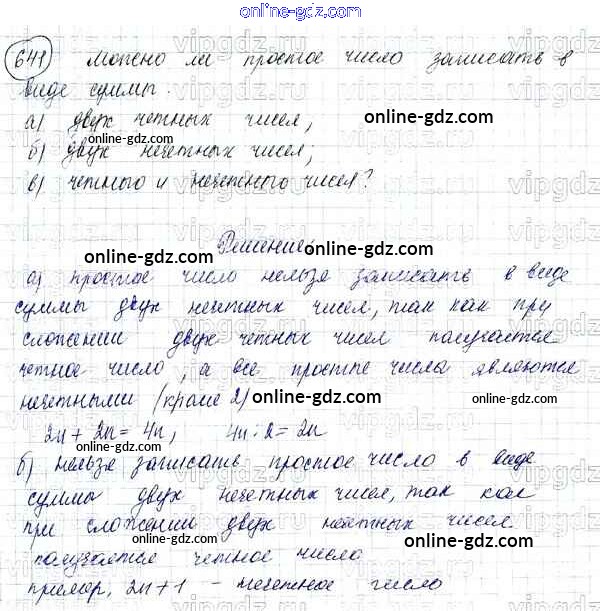 online-gdz.com
641 Можно ли простое число записать в
виде суммы.
а) двух четных чисел,
online-gdz.com
б) двух нечетных чисел;
online-gdz.com
в) четного и нечетного чисел?
online-gdz.com
Решение:
online-gdz.com
online-gdz.com
а) простое число нельзя записать в виде
суммы двух нечетных чисел, так как при
online-gdz.com
сложении двух четных чисел получается
четное число, а все простые числа являются
нечетными (кроме 2)
online-gdz.com
2n + 2n = 4n, 4n : 2 = 2n
online-gdz.com
online-gdz.com
б) нельзя записать простое число в виде
суммы двух нечетных чисел, так как
online-gdz.com
при сложении двух нечетных чисел
получается четное число
online-gdz.com
пример, 2n + 1 - нечетное число
vipgdz